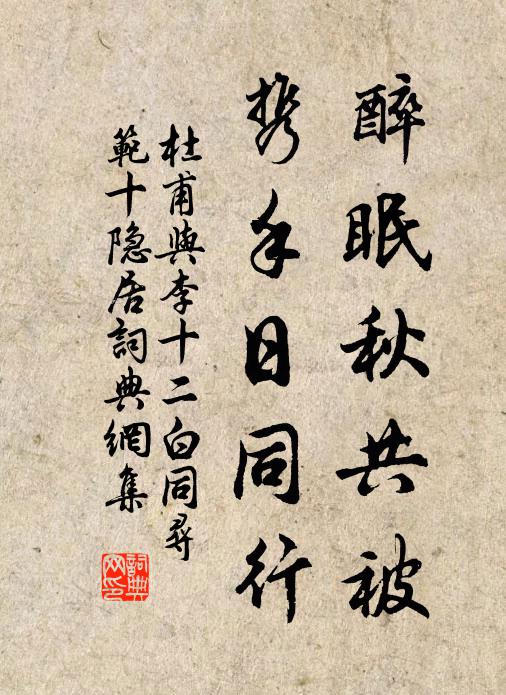 醉眠秋共被
携手日同行
杜甫與李十二白同尋
範十隐居詞典網集
詞典
网印